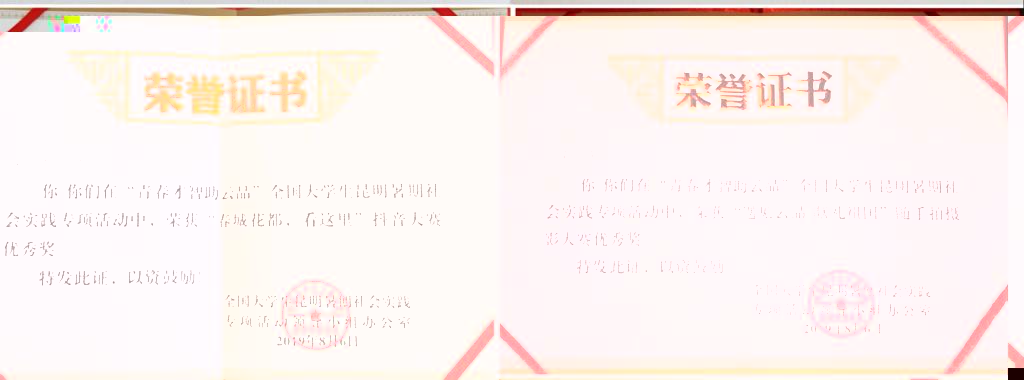 荣誉证书
你/你们在“青春才智助云品”全国大学生昆明暑期社
会实践专项活动中，荣获“春城花都，看这里”抖音大赛
优秀奖
特发此证，以资鼓励
全国大学生昆明暑期社会实践
专项活动领导小组办公室
2019年8月6日
荣誉证书
你/你们在“青春才智助云品”全国大学生昆明暑期社
会实践专项活动中，荣获“随手拍摄
影大赛优秀奖
特发此证，以资鼓励
全国大学生昆明暑期社会实践
2019年8月6日